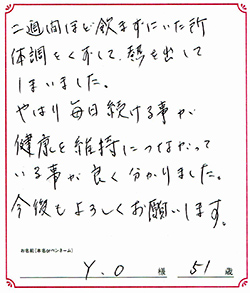 二週間ほど飲まずにいた所
体調をくずして、熱を出して
しまいました。
やはり毎日続ける事が
健康を維持につながって
いる事が良く分かりました。
今後もよろしくお願いします。
お名前(本名orペンネーム)
Y.O 様 51歳